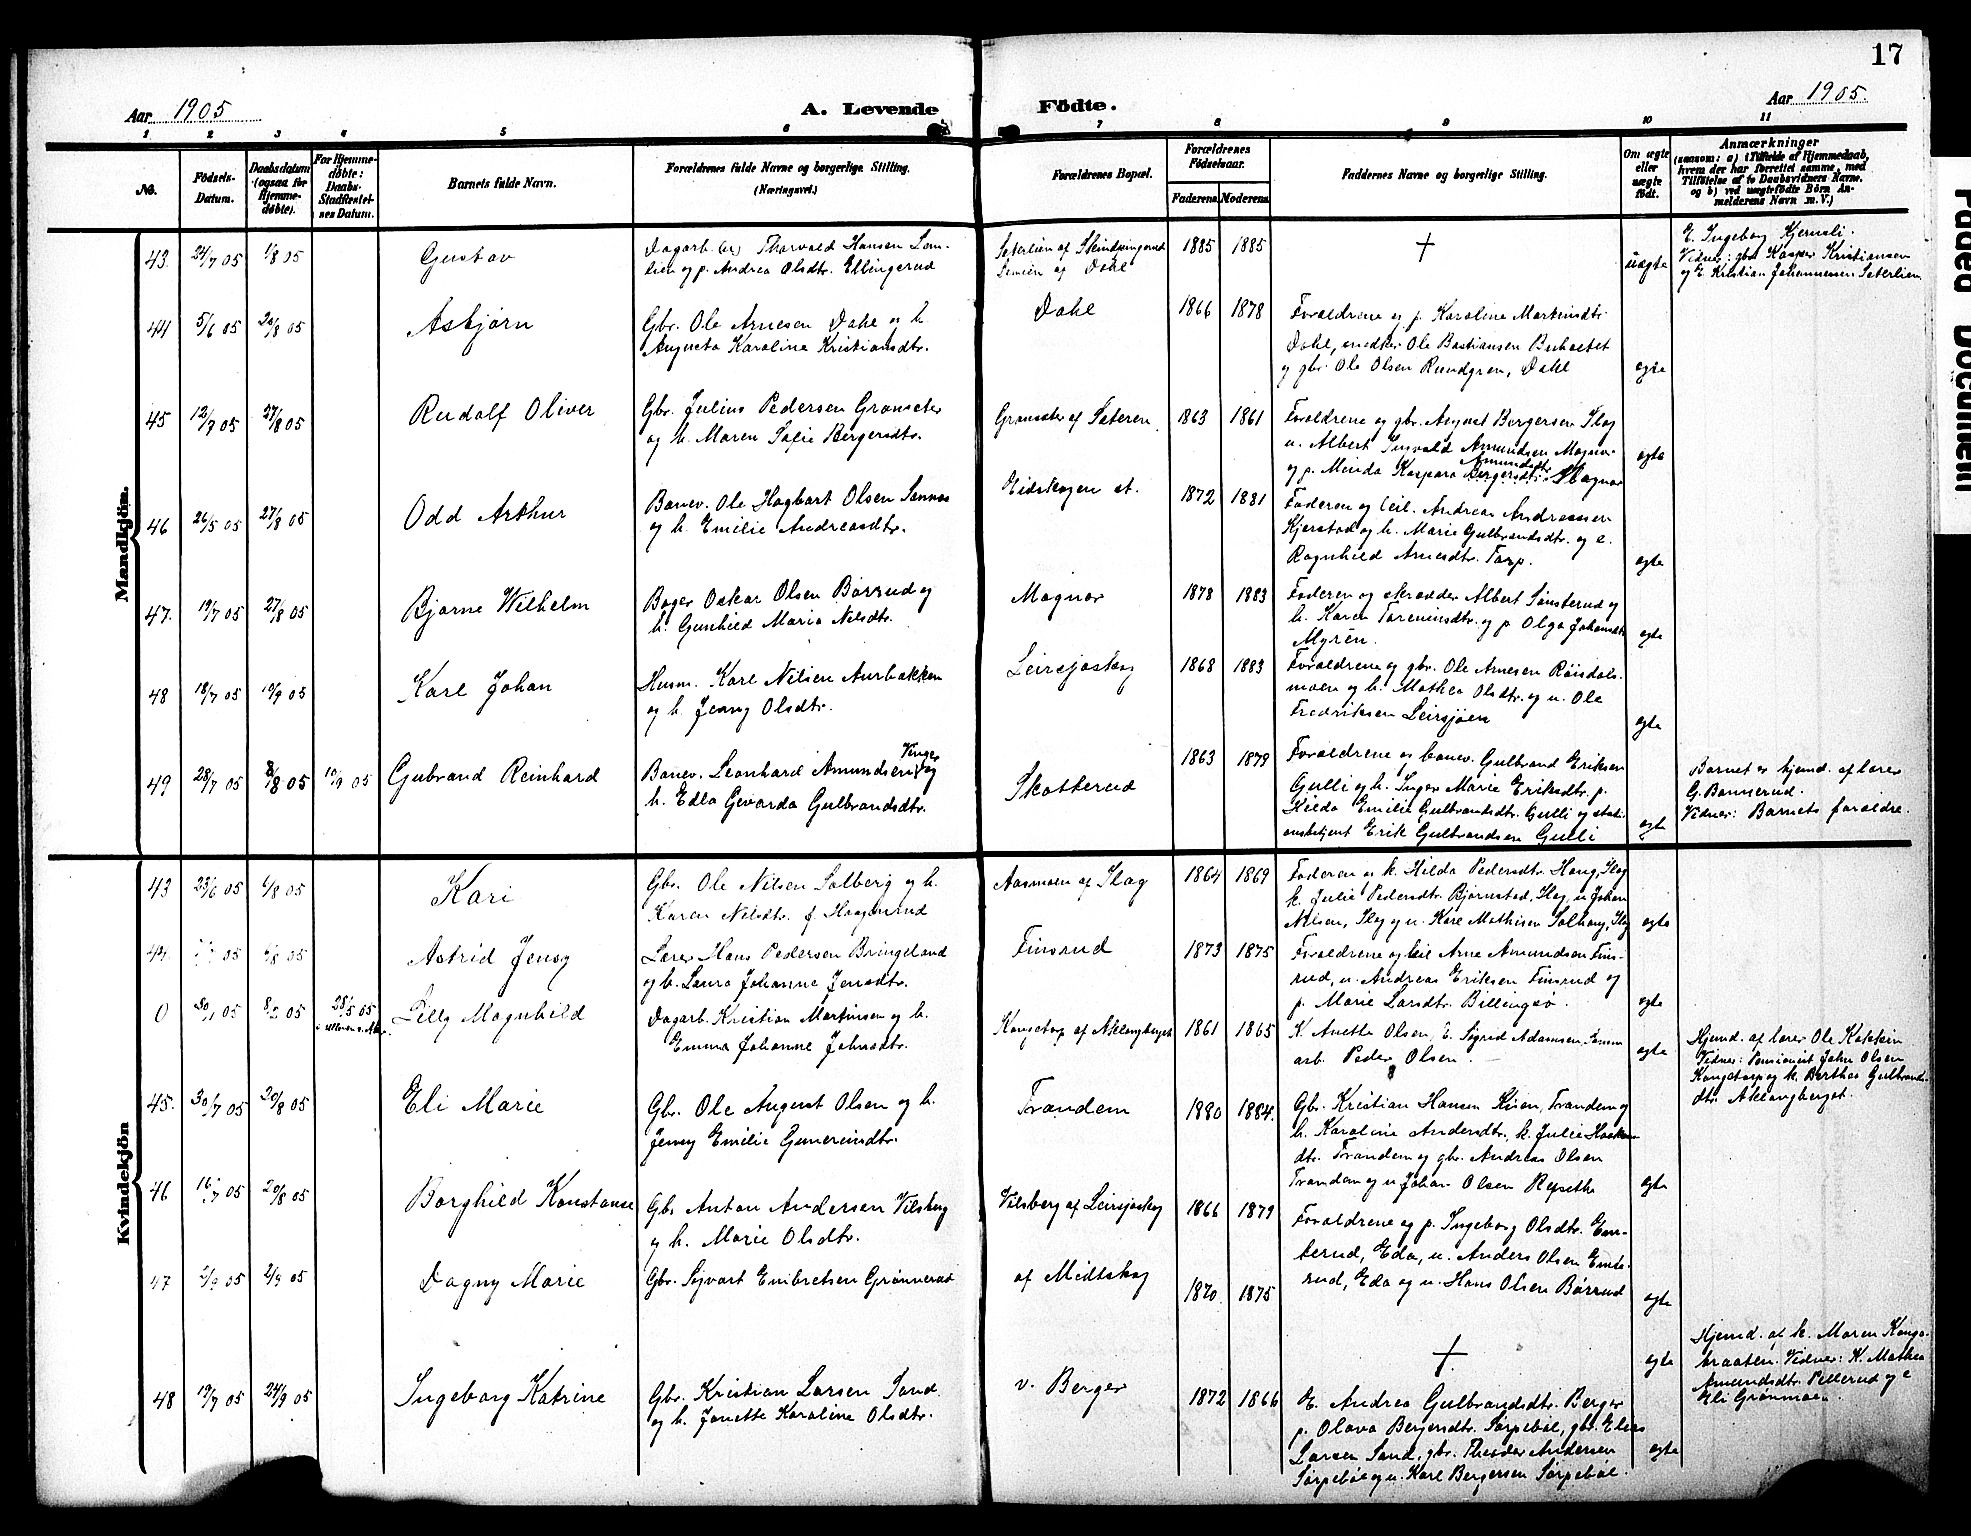 17
Aar 1905
A. Levende Födte.
Aar 1905.
1 2 3 4 5 6 7 8 9 10 11
No.
Födsels-Datum.
Daabsdatum (ogsaa for Hjemmedöbte).
For Hjemmedöbte: Daabs-Stadfæstelses Datum.
Barnets fulde Navn.
Forældrenes fulde Navne og borgerlige Stilling.
(Næringsvei.)
Forældrenes Bopæl.
Forældrenes Födselsaar.
Faderens Moderens
Faddernes Navne og borgerlige Stilling.
Om ægte eller uægte födt.
Anmærkninger
(saasom: a) i Tilfælde af Hjemmedaab, hvem der har forrettet samme, med Tilföielse af to Daabsvidners Navne. og b) ved uægtefödte Börn Anmelderens Navn m. V.)
Mandkjön.
43 24/7 05 1/8 05 Gustav
Dagarb. Thorvald Hansen
og p. Andrea Olsdtr. Ellingerud
Dahl
1885 1885 † uægte
E. Ingeborg Kjernsli.
Vidner: gbr Kasper Kristiansen
og E. Kristian Johannessen Seterlien
44 5/6 05 20/8 05 Asbjørn
Gbr. Ole Arnesen Dahl og h.
Augusta Karoline Kristiansdtr.
Dahl 1866 1878
Forældrene og p. Karoline Martinsdtr.
Dahl, Ole Bastiansen
og gbr. Ole Olsen Rundgren, Dahl ægte
45 12/7 05 27/8 05 Rudolf Oliver
Gbr. Julius Pedersen Grønseter
og h. Maren Sofie Bergersdtr.
Grønseter af Sæteren 1863 1861
Forældrene og gbr. August Bergersen Slag
u. Albert Ingvald Amundsen Magnor
og p. Minda Kaspara Amundsdtr. Magnor ægte
46 26/5 05 27/8 05 Odd Arthur
Banev. Ole Hagbart Olsen Sannes
og h. Emilie Andreasdtr.
Eidskogen st. 1872 1881
Faderen og leil. Andreas Andreassen
Kjerstad og h. Marie Gulbrandsdtr. og e.
Ragnhild Arnesdtr. Torp. ægte
47. 19/7 05 27/8 05 Bjarne Wilhelm
Bager Oskar Olsen Børrud og
h. Gunhild Maria Nilsdtr.
Magnor 1878 1883
Faderen og skrædder Albert Sønsterud og
h. Karen Tareninsdtr. og p. Olga Johansdtr.
Myrén. ægte
48 18/7 05 10/9 05 Karl Johan
Husm. Karl Nilsen Aurbakken
og h. Jenny Olsdtr.
Leirsjøskog 1868 1883
Forældrene og gbr. Ole Arnesen Røisdals-
moen og h. Mathea Olsdtr. og u. Ole
Fredriksen Leirsjøen ægte
49 28/7 05 8/8 05 10/9 05 Gubrand Reinhard
Banev. Leonhard Amundsen Vinger og
h. Edla Gevarda Gulbrandsdtr.
Skotterud 1863 1879
Forældrene og banev. Gulbrand Eriksen
Gulli og h. Inger Marie Eriksdtr. p.
Hilda Emilie Gulbrandsdtr. Gulli og stati-
onsbetjent Erik Gulbrandsen Gulli ægte
Barnet er hjemd. af lærer
G. Bannerud.
Vidner: Barnets forældre.
Kvindekjön
43 23/6 05 6/8 05 Kari
Gbr. Ole Nilsen Solberg og h.
Karen Nilsdtr. f. Haagenrud
Aasmoen af Slag 1864 1869
Faderen og k. Hilda Pedersdtr. Haug, Slag
k. Julie Pedersdtr. Bjørnstad, Slag, u. Johan
Nilsen, Slag og u. Karl Mathisen Solhaug, Slag ægte
44. 05 6/8 05 Astrid Jensy
Lærer Hans Pedersen Bringeland
og h. Laura Johanne Jensdtr.
Finsrud 1873 1875
Forældrene og leil Arne Amundsen Fins-
rud, u. Andreas Eriksen Finsrud og
p. Marie Larsdtr. Billingsø. ægte
0 30/1 05 8/2 05 28/5 05 Lilly Magnhild
Dagarb. Kristian Martinsen og h.
Emma Johanne Johnsdtr.
Kongstorp af Aklangberget 1861 1865
K. Anette Olsen, E. Sigrid Adamsen,
arb. Peder Olsen. ægte
Hjemd. af lærer Ole Kakkin
Vidner: Pensionist John Olsen
Kongstorp og k. Berthea Gulbrands-
dtr. Aklangberget.
45. 30/7 05 20/8 05 Eli Marie
Gbr. Ole August Olsen og h.
Jenny Emilie Gunerindtr.
Trandem 1880 1884.
Gbr. Kristian Hansen Kvien, Trandem og
h. Karoline Andersdtr. k. Julie Haakons-
dtr. Trandem og gbr. Andreas Olsen
Trandem og u Johan Olsen Repsethe ægte
46 16/7 05 20/8 05 Borghild Konstanse
Gbr Anton Andersen Vilsberg
og h. Marie Olsdtr.
Vilsberg af Leirsjøskog 1866 1879
Forældrene og p. Ingeborg Olsdtr. Em-
terud, Eda, u. Anders Olsen Emte-
rud, Eda og u. Hans Olsen Børrud ægte
47 2/9 05 2/9 05 Dagny Marie
Gbr. Sigvart Embretsen Grønnerud
af Midtskog 1870 1875 † ægte
Hjemd. af k. Maren Kongs-
braaten. Vidner: K. Mathea
Amundsdtr. Pellerud og e
Eli Grønmoen.
48 19/7 05 24/9 05 Ingeborg Katrine
Gbr. Kristian Larsen Sand.
og h. Janette Karoline Olsdtr.
v. Berger 1872 1866
E. Andrea Gulbrandsdtr. Berger
p. Olava Bergersdtr. Sørpebøl, gbr. Elias
Larsen Sand, gbr. Theodor Andersen
Sørpebøl og u. Karl Bergersen Sørpebøl. ægte